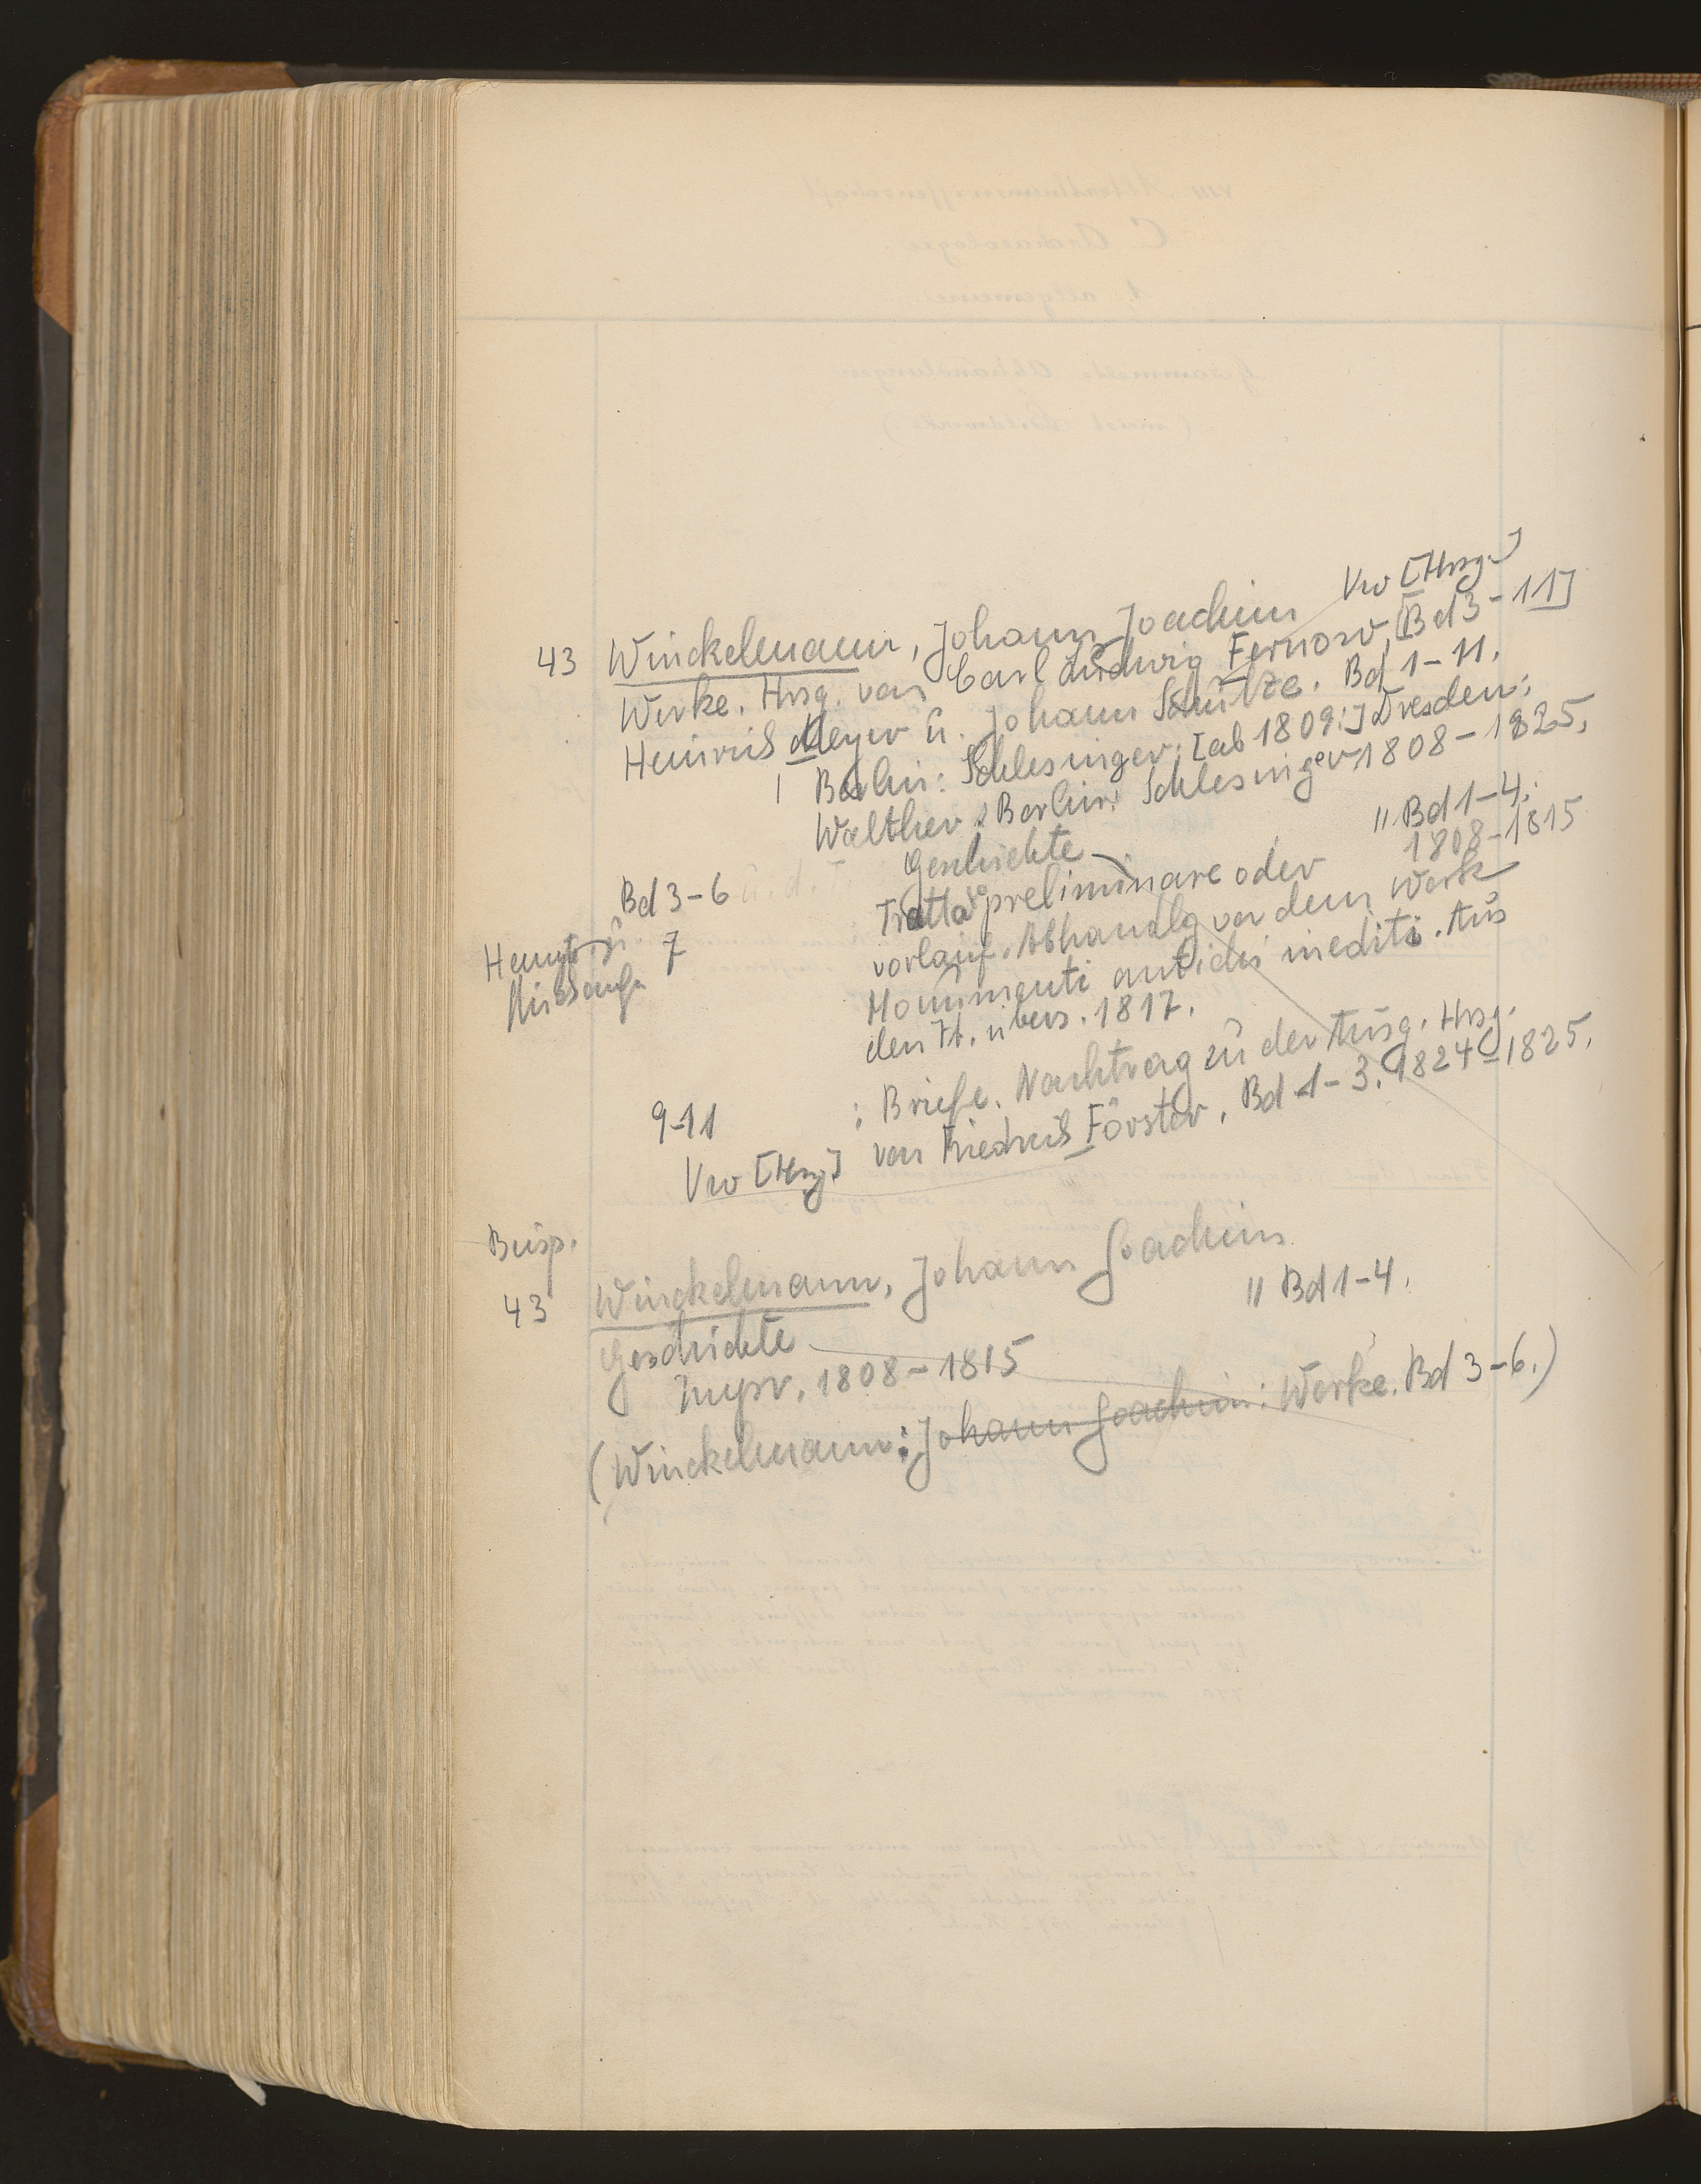 Vw [Hrsg.]
43 Winckelmann, Johann Joachim
Werke. Hrsg. von Carl Ludwig Fernow, [Bd 3-11]
Heinrich Meyer u. Johann Schulze. Bd 1-11.
Berlin: Schlesinger; [ab 1809:] Dresden:
Walther; Berlin: Schlesinger 1808-1825.
Bd 3-6 Geschichte — " Bd 1-4.
1808-1815
7 Trattato preliminare oder
vorläuf. Abhandlg von dem Werk
Monumenti antichi inediti. Aus
den It. übers. 1817.
9-11 : Briefe. Nachtrag zu der Ausg. Hrsg.
Vw [Hrsg] von Friedrich Förster. Bd 1-3. 1824-1825.
43 Winckelmann, Johann Joachim
Geschichte — " Bd 1-4.
1808-1815
(Winckelmann: Johann Joachim: Werke. Bd 3-6.)